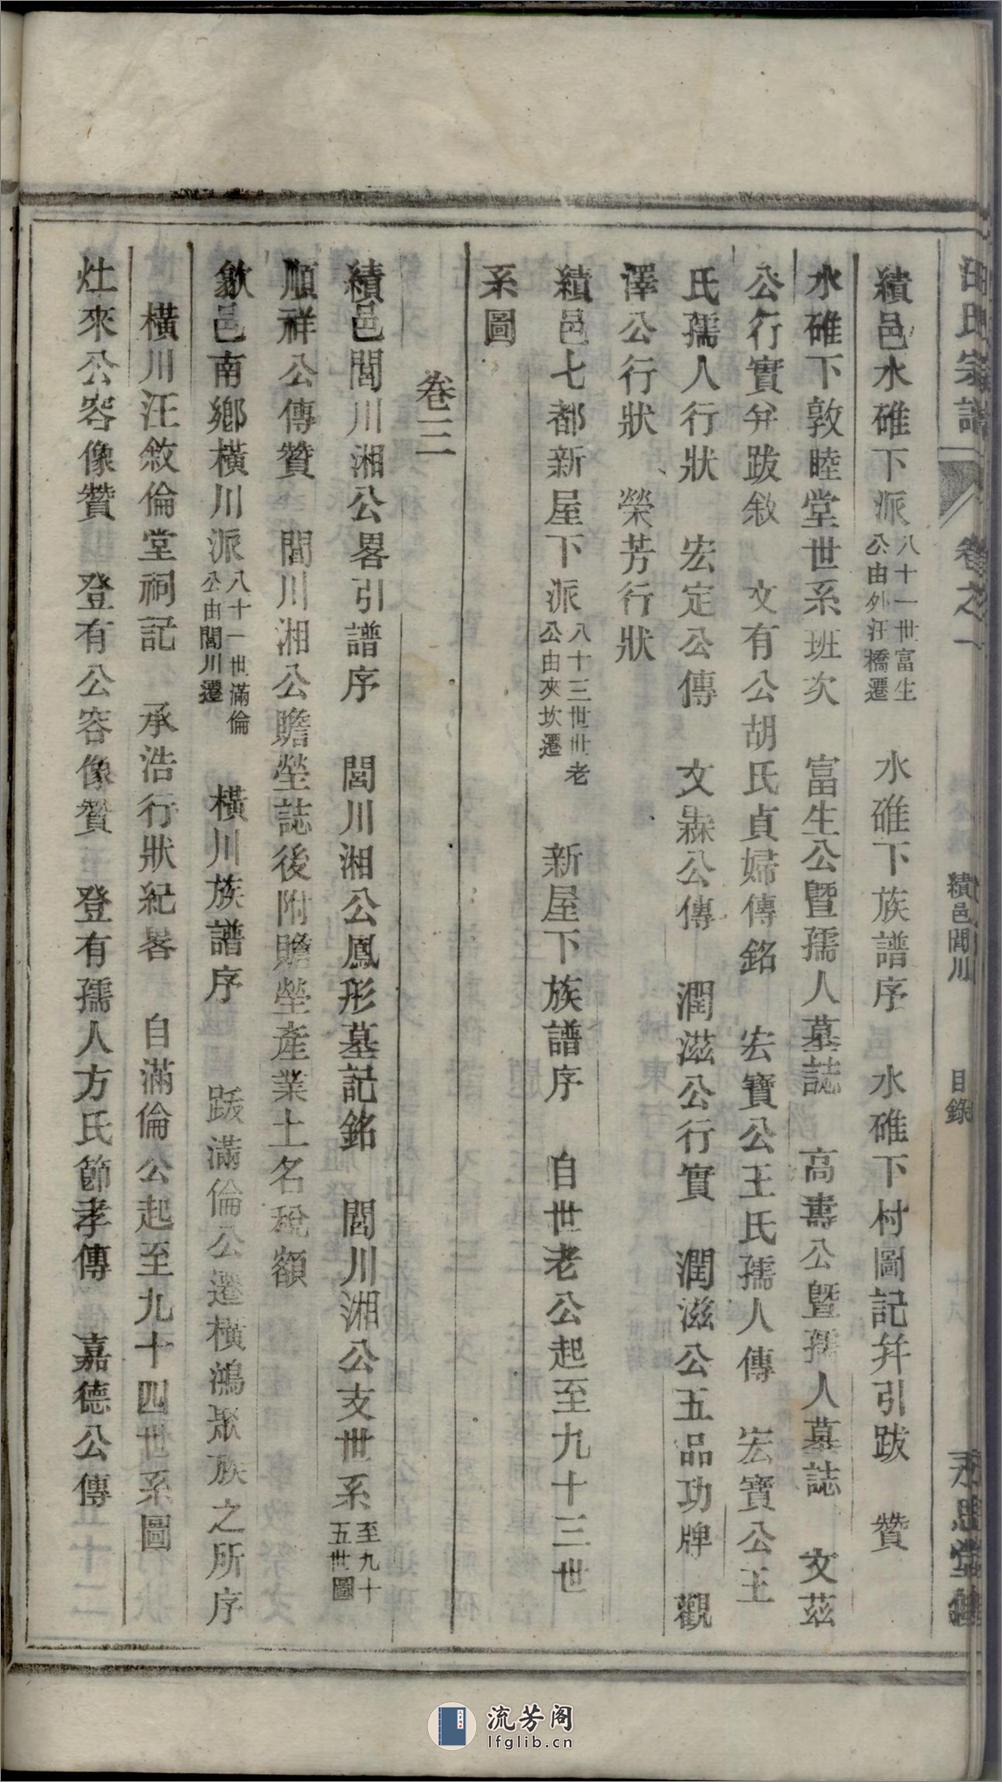 氏宗譜 卷之一 績邑閭川 目錄 永思堂
績邑水碓下派 八十一世富生公由外汪橋遷 水碓下族譜序 水碓下村圖記幷引跋 贊
水碓下敦睦堂世系班次 富生公暨孺人墓誌 高壽公暨孺人墓誌 文茲
公行實弁跋敘 文有公胡氏貞婦傳銘 宏寶公王氏孺人傳 宏寶公王
氏孺人行狀 宏定公傳 文霖公傳 潤滋公行實 潤滋公五品功牌 觀
澤公行狀 榮芳行狀
績邑七都新屋下派 八十三世世老公由夾坎遷 新屋下族譜序 自世老公起至九十三世
系圖
卷三
績邑閭川湘公畧引譜序 閭川湘公鳳形墓記銘 閭川湘公支世系 至九十五世圖
順祥公傳贊 閭川湘公贍塋誌後附贍塋產業土名稅額
歙邑南鄉橫川派 八十一世滿倫公由閭川遷 橫川族譜序 跋滿倫公遷橫鴻聚族之所序
橫川汪敘倫堂祠記 承浩行狀紀畧 自滿倫公起至九十四世系圖
灶來公容像贊 登有公容像贊 登有孺人方氏節孝傳 嘉德公傳
流芳阁
lfglib.cn